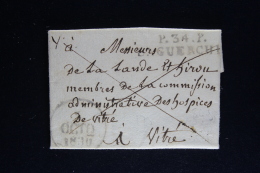 P.34.P.
GUERCHE
à Messieurs
de la Lande et
membres de la commission
administrative des hospices
de vitré
à Vitré